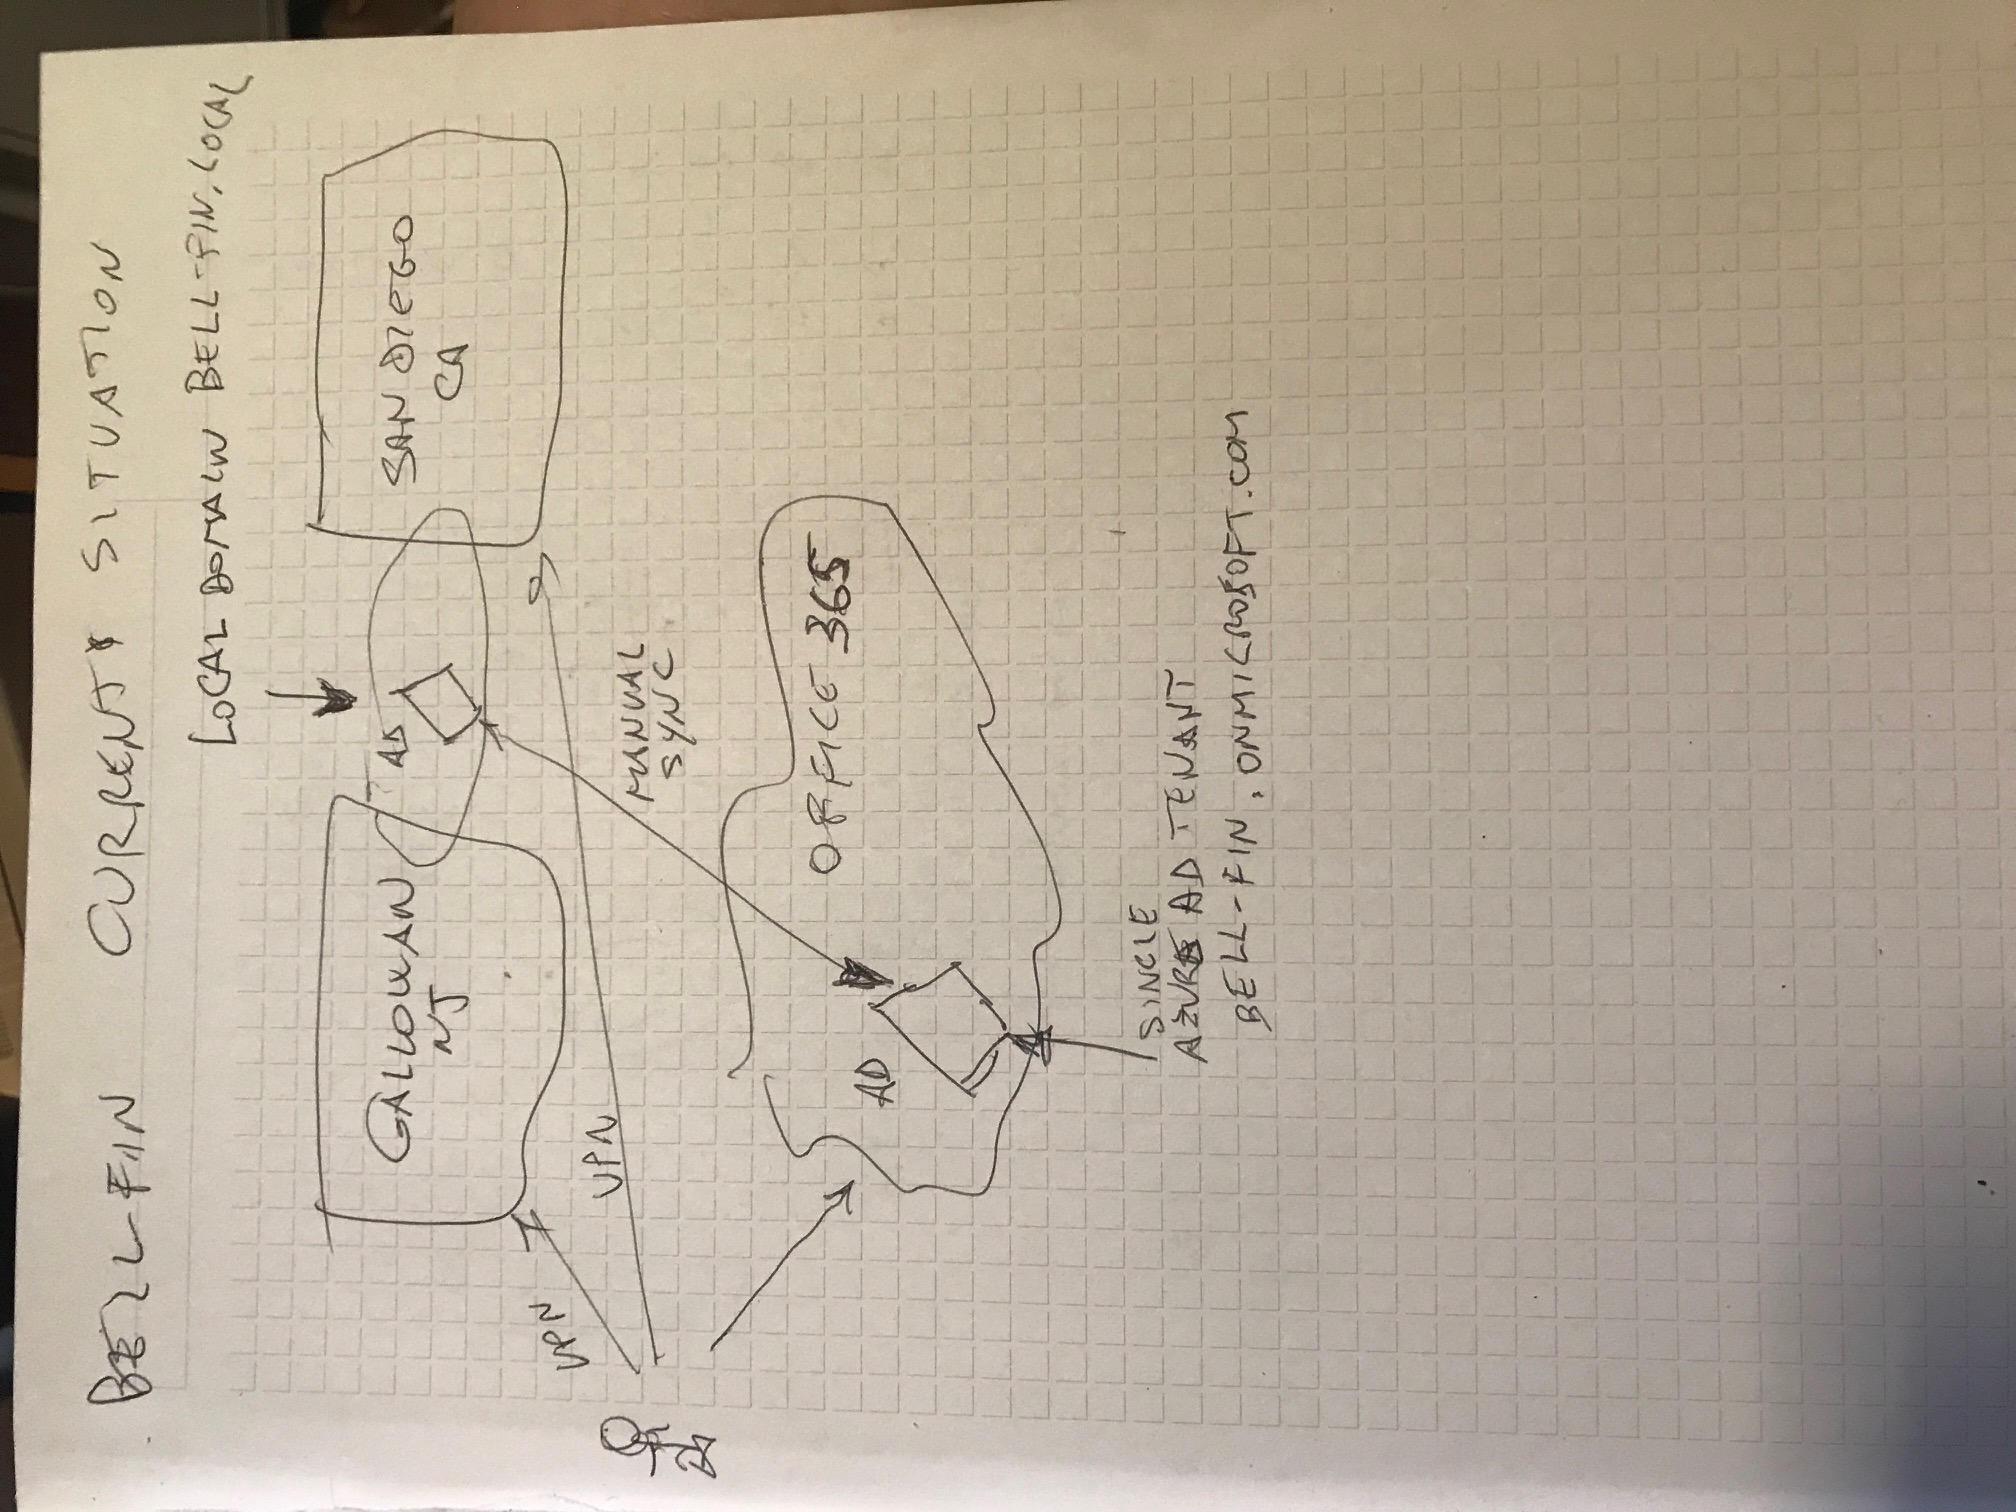 BELL FIN CURRENT SITUATION
LOCAL DOMAIN BELL-FIN.LOCAL
GALLOWAN
NJ
AD
SAN DIEGO
CA
VPN
VPN
MANUAL
SYNC
OFFICE 365
AD
SINGLE
AZURE AD TENANT
BELL-FIN.ONMICROSOFT.COM